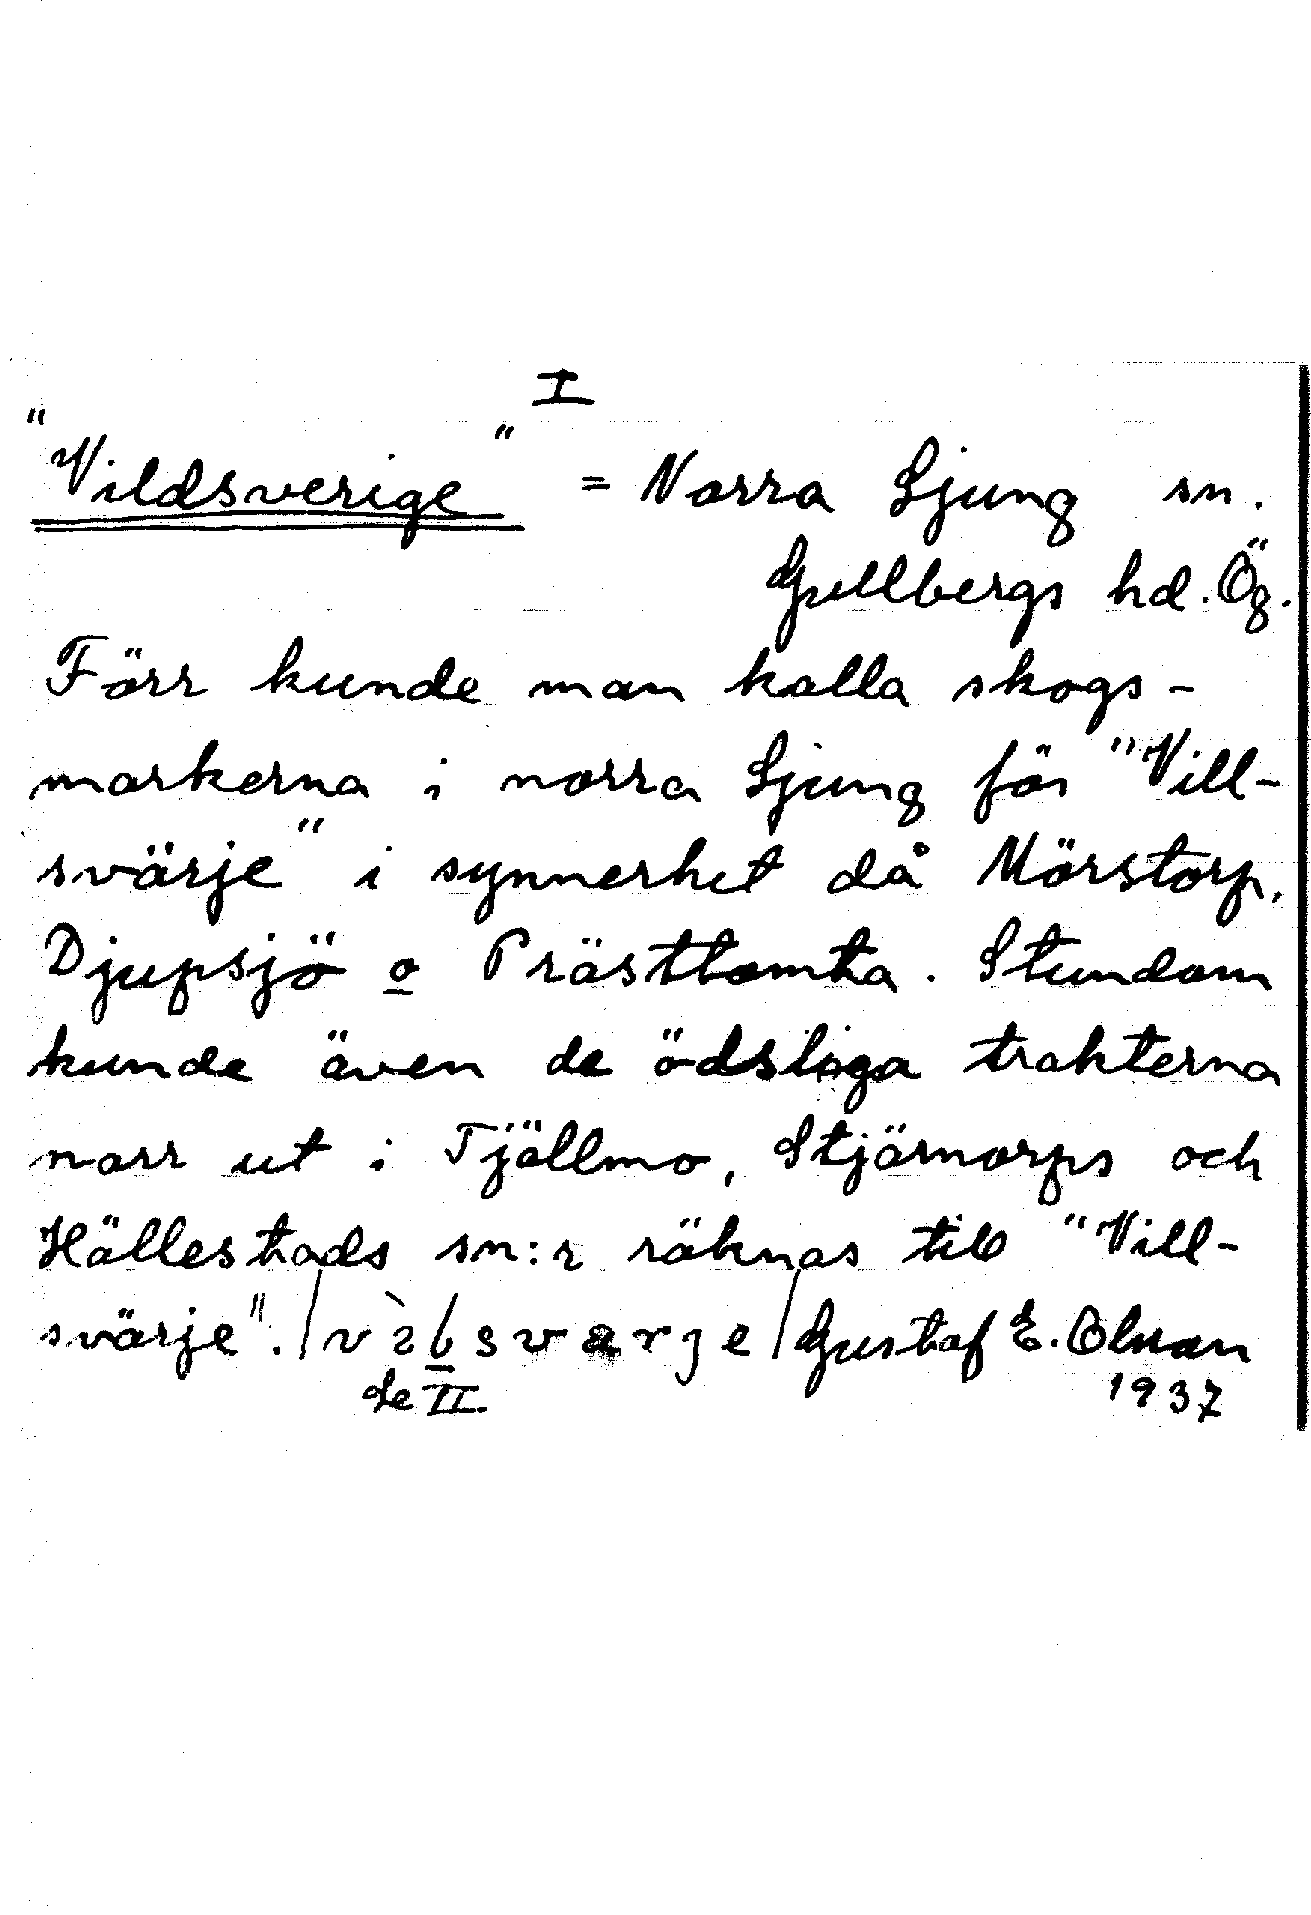 I
"Vildsverige" = Norra Ljung sn.
Gullbergs hd. Ög.
Förr kunde man kalla skogs-
markerna i norra Ljung för "Vill-
svärje" i synnerhet då Mörstorp,
Djupsjö o Prästtomta. Stundom
kunde även de ödsliga trakterna
norr ut i Tjällmo, Stjärnorps och
Hällestads sn:r räknas till "Vill-
svärje". Gustaf E. Olsson
de II.
1937